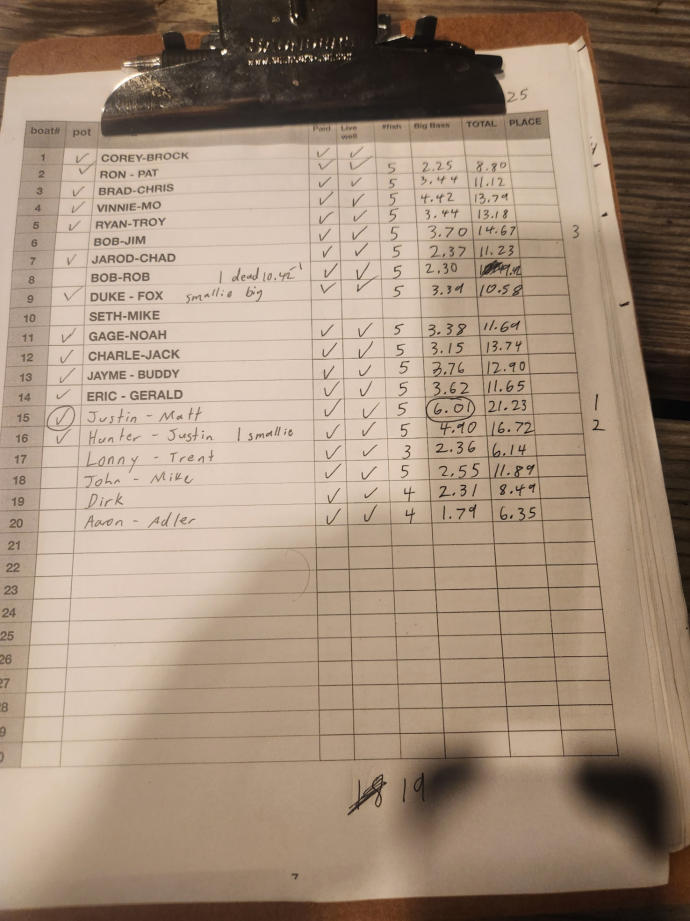 SAUNDERS
www.saunders-usa.com
25
boat# pot Paid Live well #fish Big Bass TOTAL PLACE
1 ✓ COREY-BROCK ✓ ✓
2 ✓ RON - PAT ✓ ✓ 5 2.25 8.80
3 ✓ BRAD-CHRIS ✓ ✓ 5 3.44 11.12
4 ✓ VINNIE-MO ✓ ✓ 5 4.42 13.79
5 ✓ RYAN-TROY ✓ ✓ 5 3.44 13.18
6 BOB-JIM ✓ ✓ 5 3.70 14.67 3
7 ✓ JAROD-CHAD ✓ ✓ 5 2.37 11.23
8 BOB-ROB 1 dead 10.42 ✓ ✓ 5 2.30
9 ✓ DUKE - FOX smallie big ✓ ✓ 5 3.39 10.58
10 SETH-MIKE
11 ✓ GAGE-NOAH ✓ ✓ 5 3.38 11.69
12 ✓ CHARLE-JACK ✓ ✓ 5 3.15 13.74
13 ✓ JAYME - BUDDY ✓ ✓ 5 3.76 12.90
14 ✓ ERIC - GERALD ✓ ✓ 5 3.62 11.65
15 ✓ Justin - Matt ✓ ✓ 5 6.01 21.23 1
16 ✓ Hunter - Justin 1 smallie ✓ ✓ 5 4.90 16.72 2
17 Lonny - Trent ✓ ✓ 3 2.36 6.14
18 John - Mike ✓ ✓ 5 2.55 11.89
19 Dirk ✓ ✓ 4 2.31 8.49
20 Aaron - Adler ✓ ✓ 4 1.79 6.35
21
22
23
24
25
26
27
8
9
0
18 19
7